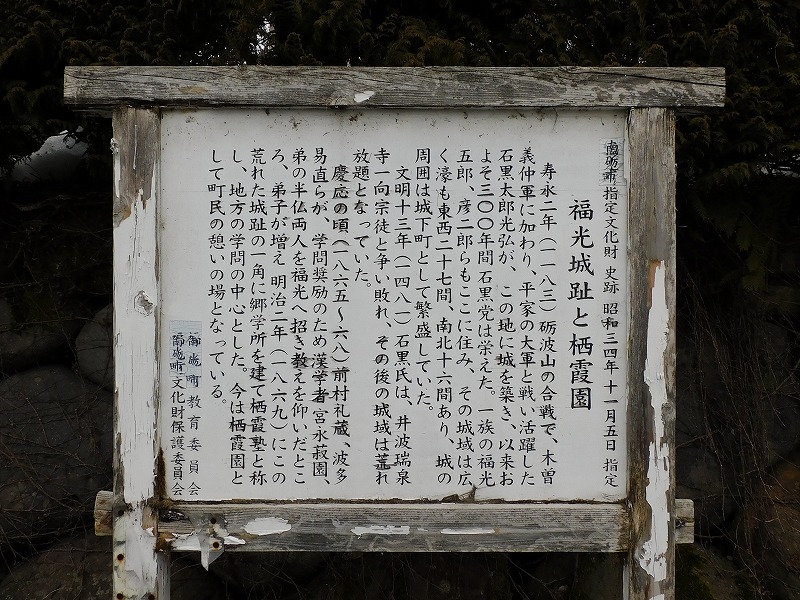 南砺市指定文化財 史跡 昭和三四年十一月五日 指定
福光城趾と栖霞園
寿永二年(一一八三)砺波山の合戦で、木曽
義仲軍に加わり、平家の大軍と戦い活躍した
石黒太郎光弘が、この地に城を築き、以来お
よそ三〇〇年間石黒党は栄えた。一族の福光
五郎、彦二郎らもここに住み、その城域は広
く濠も東西二十七間、南北十六間あり、城の
周囲は城下町として繁盛していた。
文明十三年(一四八一)石黒氏は、井波瑞泉
寺一向宗徒と争い敗れ、その後の城域は荒れ
放題となっていた。
慶応の頃(一八六五〜六八)前村礼蔵、波多
易直らが、学問奨励のため漢学者宮永菽園、
弟の半仏両人を福光へ招き教えを仰いだとこ
ろ、弟子が増え明治二年(一八六九)にこの
荒れた城趾の一角に郷学所を建て栖霞塾と称
し、地方の学問の中心とした。今は栖霞園と
して町民の憩いの場となっている。
南砺市教育委員会
南砺市文化財保護委員会